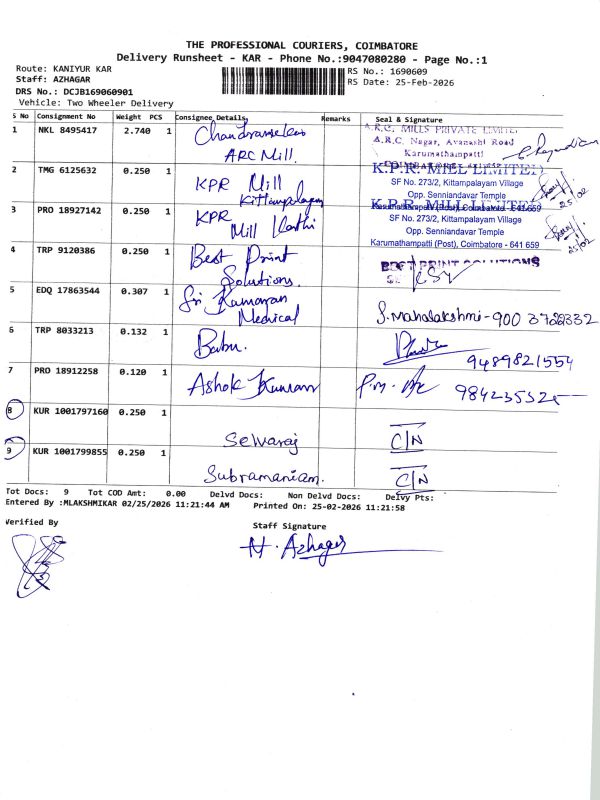 THE PROFESSIONAL COURIERS, COIMBATORE
Delivery Runsheet - KAR - Phone No.:9047080280 - Page No.:1
Route: KANIYUR KAR
RS No.: 1690609
Staff: AZHAGAR
RS Date: 25-Feb-2026
DRS No.: DCJB169060901
Vehicle: Two Wheeler Delivery
S No Consignment No Weight PCS Consignee Details Remarks Seal & Signature
1 NKL 8495417 2.740 1 ARC Mill. A.R.C. MILLS PRIVATE LIMITED
A.R.C. Nagar, Avanashi Road
Karumathampatti
2 TMG 6125632 0.250 1 KPR Mill Kittampalayam K.P.R. MILL LIMITED
SF No. 273/2, Kittampalayam Village
Opp. Senniandavar Temple
Karumathampatti (Post), Coimbatore - 641 659
25/02
3 PRO 18927142 0.250 1 KPR Mill K.P.R. MILL LIMITED
SF No. 273/2, Kittampalayam Village
Opp. Senniandavar Temple
Karumathampatti (Post), Coimbatore - 641 659
25/02
4 TRP 9120386 0.250 1 Best Print Solutions. BEST PRINT SOLUTIONS
5 EDQ 17863544 0.307 1 Sri Ramanan Medical S. Mahalakshmi - 900
6 TRP 8033213 0.132 1 Babu. 9489821554
7 PRO 18912258 0.120 1 Ashok Kumar
8 KUR 1001797160 0.250 1 Selvaraj C/N
9 KUR 1001799855 0.250 1 Subramaniam. C/N
Tot Docs: 9 Tot COD Amt: 0.00 Delvd Docs: Non Delvd Docs: Delvy Pts:
Entered By :MLAKSHMIKAR 02/25/2026 11:21:44 AM Printed On: 25-02-2026 11:21:58
Verified By
Staff Signature
Azhagar